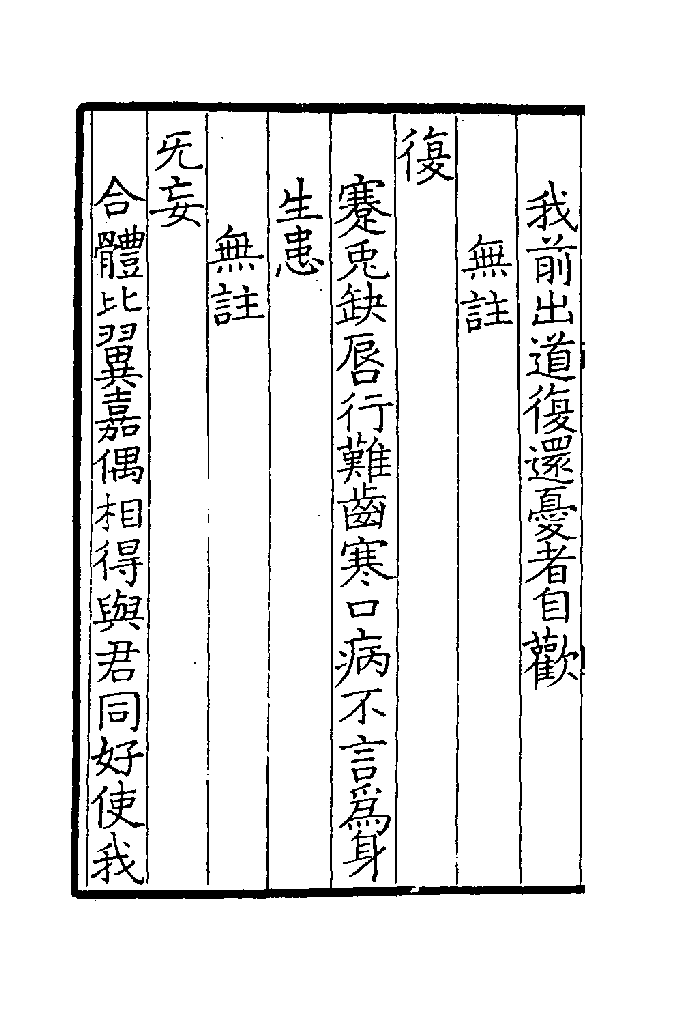 我前出道復還憂者自歡
無註
復
蹇兎缺唇行難齒寒口病不言爲身
生患
無註
无妄
合體比翼嘉偶相得與君同好使我